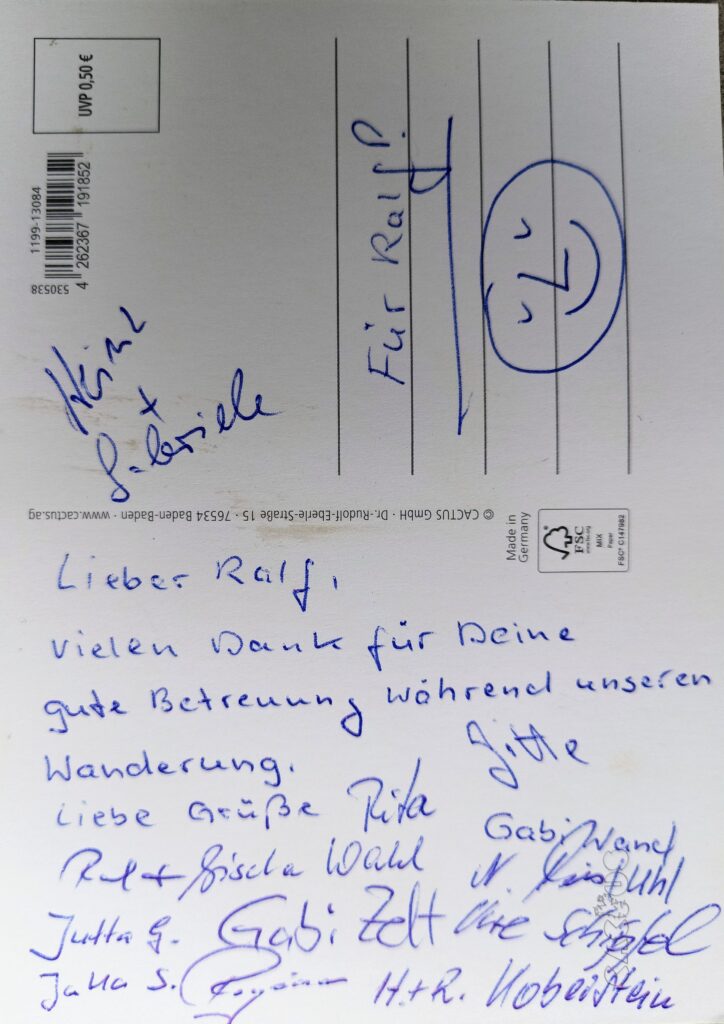 UVP 0,50 €
1199-13084
4 262367 191852
530538
Für Ralf P.
Heinz
+
Gabriele
© CACTUS GmbH · Dr.-Rudolf-Eberle-Straße 15 · 76534 Baden-Baden · www.cactus.ag
Made in
Germany
FSC
www.fsc.org
MIX
Paper
FSC® C147982
Lieber Ralf,
vielen Dank für Deine
gute Betreuung während unseren
Wanderung.
Gitte
Liebe Grüße Rita
Gabi Wand
+ Gisela Wahl
N.
Jutta G. Gabi Zelt
Jutta S.
H.+R. Hoberstein
CACTUS